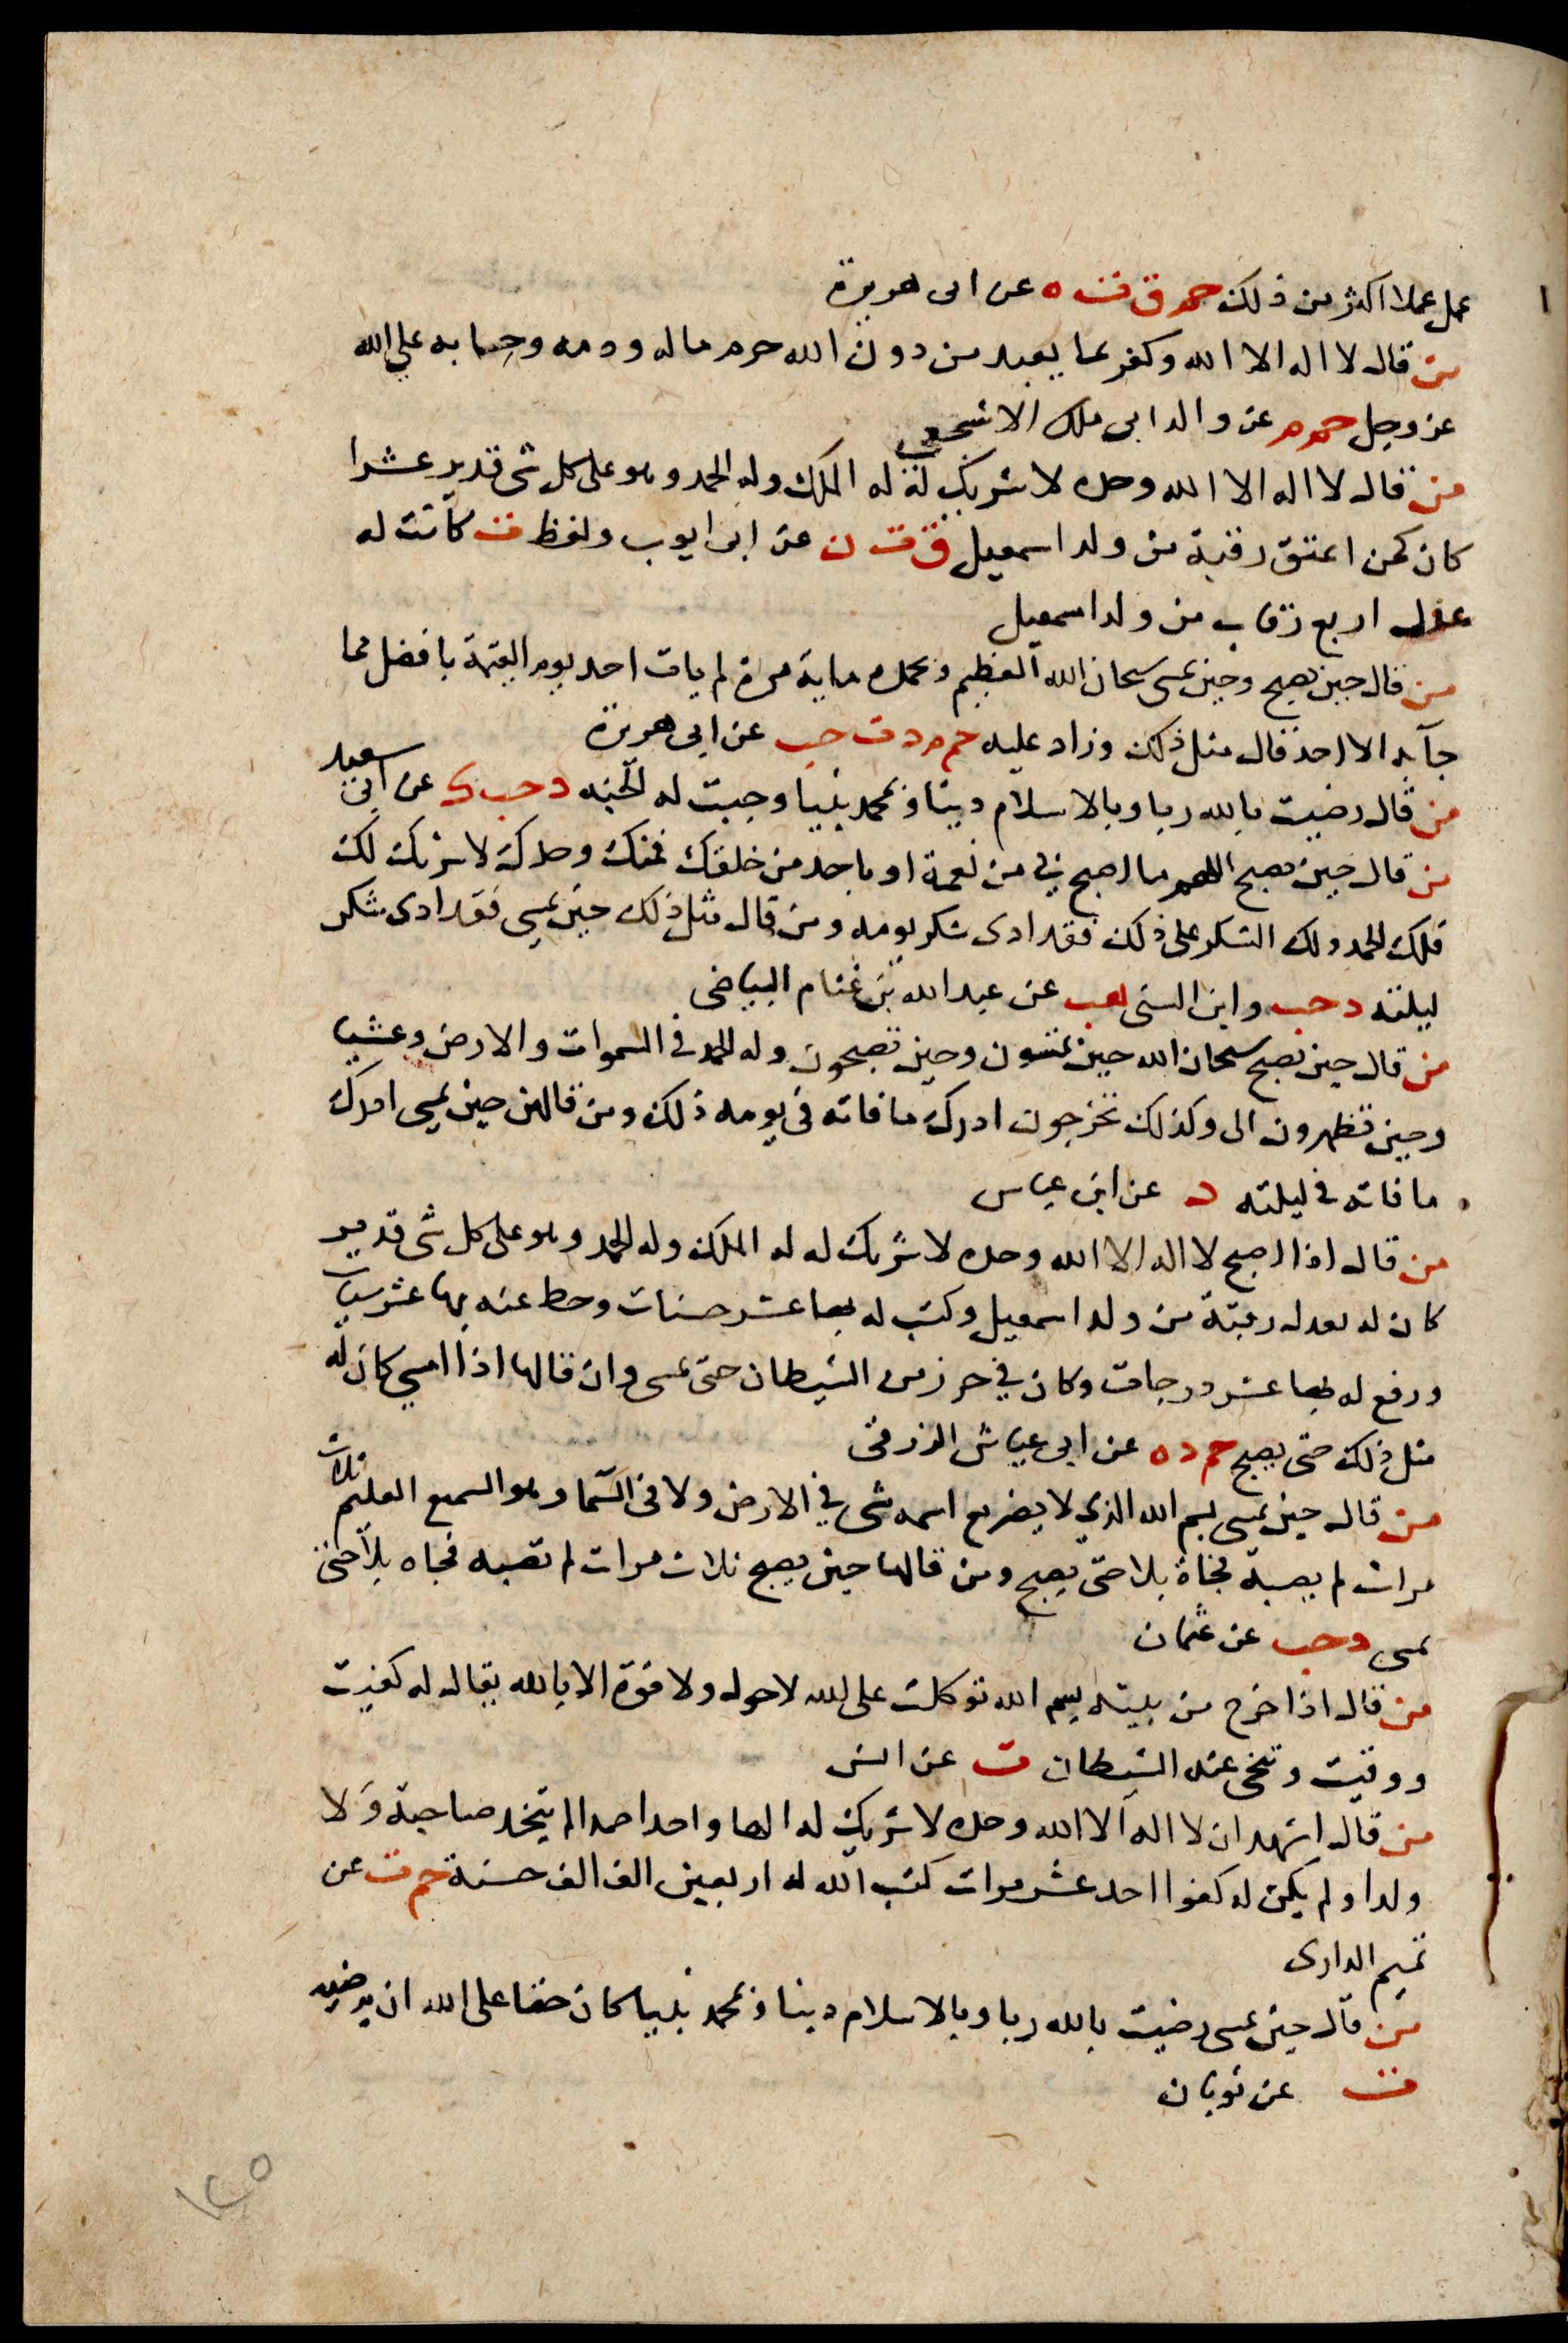 عمل عملا اكثر من ذلك حم ق ت ه عن ابى هريرة
من قال لا اله الا الله وكفر بما يعبد من دون الله حرم ماله ودمه وحسابه على الله
عز وجل حم م عن والد ابى ملك الاشجعى
من قال لا اله الا الله وحده لا شريك له له الملك وله الحمد وهو على كل شى قدير عشرا
كان كمن اعتق رقبة من ولد اسمعيل ق ت ن عن ابى ايوب ولفظ ت كانت له
عدل اربع رقاب من ولد اسمعيل
من قال حين يصبح وحين يمسى سبحان الله العظيم وبحمده ماية مرة لم يات احد يوم القيمة بافضل مما
جآ به الا احد قال مثل ذلك وزاد عليه حم م د ت حب عن ابى هريرة
من قال رضيت بالله ربا وبالاسلام دينا وبمحمد نبيا وجبت له الجنه د حب ك عن ابى سعيد
من قال حين يصبح اللهم ما اصبح بى من نعمة او باحد من خلقك فمنك وحدك لا شريك لك
فلك الحمد ولك الشكر على ذلك فقد ادى شكر يومه ومن قال مثل ذلك حين يمسى فقد ادى شكر
ليلته د حب وابن السنى هب عن عبد الله بن غنام البياضى
من قال حين يصبح سبحان الله حين تمسون وحين تصبحون وله الحمد فى السموات والارض وعشيا
وحين تظهرون الى وكذلك تخرجون ادرك ما فاته فى يومه ذلك ومن قالهن حين يمسى ادرك
ما فاته فى ليلته د عن ابن عباس
من قال اذا اصبح لا اله الا الله وحده لا شريك له له الملك وله الحمد وهو على كل شى قدير
كان له بعدل رقبة من ولد اسمعيل وكتب له بها عشر حسنات وحط عنه بها عشر سيات
ورفع له بها عشر درجات وكان في حرز من الشيطان حتى يمسى وان قالها اذا امسي كان له
مثل ذلك حتى يصبح حم د ه عن ابى عياش الزرقى
من قال حين يمسى بسم الله الذي لا يضر مع اسمه شى في الارض ولا فى السما وهو السميع العليم ثلاث
مرات لم يصبه فجاة بلا حتى يصبح ومن قالها حين يصبح ثلاث مرات لم تصبه فجاه بلا حتى
يمسى د حب عن عثمان
من قال اذا خرج من بيته بسم الله توكلت على الله لا حول ولا قوة الا بالله يقال له كفيت
ووقيت وتنحى عنه الشيطان ت عن انس
من قال اشهد ان لا اله الا الله وحده لا شريك له الها واحدا صمدا لم يتخد صاحبة ولا
ولدا ولم يكن له كفوا احد عشر مرات كتب الله له اربعين الف الف حسنة حم ت عن
تميم الدارى
من قال حين يمسى رضيت بالله ربا وبالاسلام دينا وبمحمد نبيا كان حقا على الله ان يرضيه
ت عن ثوبان
١٢٥